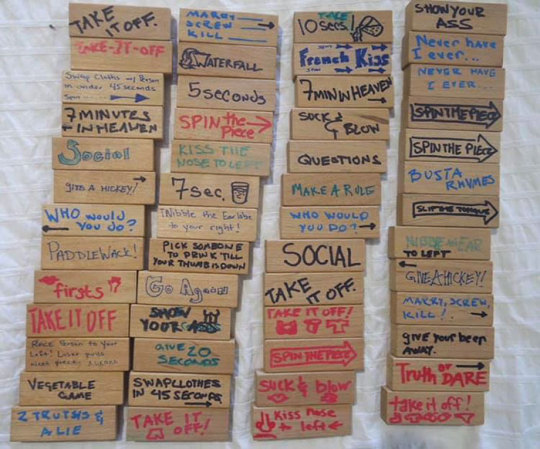 TAKE
IT OFF.
TAKE-IT-OFF
Swap Cloths
in under 45 seconds
Spin
7 MINUTES
IN HEAVEN
Social
GIVE A HICKEY!
WHO would
you do?
PADDLEWACK!
firsts
TAKE IT OFF
Race Person to your
Left! Loser gives
VEGETABLE
GAME
2 TRUTHS &
A LIE
MARRY,
SCREW
KILL
WATERFALL
5 seconds
SPIN the
Piece
KISS THE
NOSE TO LEFT
7 sec.
Nibble the Earlobe
to your right!
PICK SOMEONE
TO DRINK TILL
YOUR THUMB IS DOWN
Go Again
SHOW
YOUR ASS
GIVE 20
SECONDS
SWAP CLOTHES
IN 45 SECONDS
TAKE IT
OFF!
TAKE
10 secs!
SPIN
French Kiss
SPIN
7 MIN IN HEAVEN
SUCK &
BLOW
QUESTIONS
MAKE A RULE
WHO WOULD
YOU DO?
SOCIAL
TAKE
IT OFF.
TAKE IT OFF!
SPIN THE PIECE
Suck & blow
Kiss nose
to left
SHOW YOUR
ASS
Never have
I ever...
NEVER HAVE
I EVER...
SPIN THE PIECE
SPIN THE PIECE
BUSTA
RHYMES
SLIP THE TONGUE
NIBBLE EAR
TO LEFT
GIVE A HICKEY!
MARRY, SCREW,
KILL!
give your beer
AWAY.
Truth or
DARE
take it off!